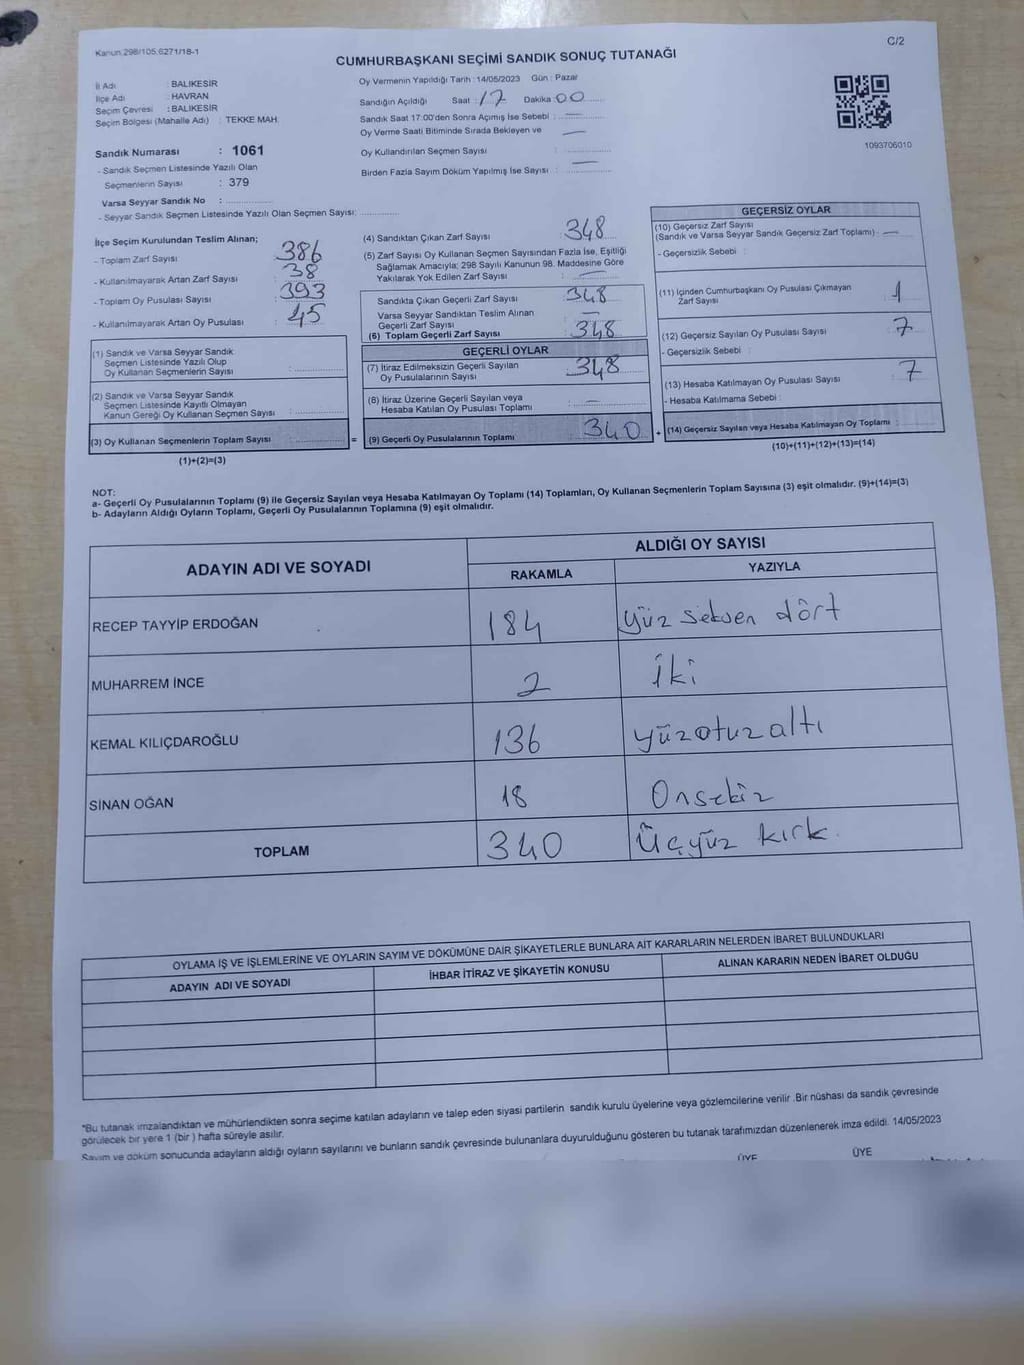 Kanun:298/105.6271/18-1
C/2
CUMHURBAŞKANI SEÇİMİ SANDIK SONUÇ TUTANAĞI
İl Adı : BALIKESİR
İlçe Adı : HAVRAN
Seçim Çevresi : BALIKESİR
Seçim Bölgesi (Mahalle Adı) : TEKKE MAH.
Oy Vermenin Yapıldığı Tarih : 14/05/2023 Gün : Pazar
Sandığın Açıldığı Saat : 17 Dakika : 00
Sandık Saat 17:00'den Sonra Açımış İse Sebebi : —
Oy Verme Saati Bitiminde Sırada Bekleyen ve
Oy Kullandırılan Seçmen Sayısı : —
Birden Fazla Sayım Döküm Yapılmış İse Sayısı : —
1093706010
Sandık Numarası : 1061
- Sandık Seçmen Listesinde Yazılı Olan
Seçmenlerin Sayısı : 379
Varsa Seyyar Sandık No :
- Seyyar Sandık Seçmen Listesinde Yazılı Olan Seçmen Sayısı:
İlçe Seçim Kurulundan Teslim Alınan;
- Toplam Zarf Sayısı : 386
- Kullanılmayarak Artan Zarf Sayısı : 38
- Toplam Oy Pusulası Sayısı : 393
- Kullanılmayarak Artan Oy Pusulası : 45
(1) Sandık ve Varsa Seyyar Sandık
Seçmen Listesinde Yazılı Olup
Oy Kullanan Seçmenlerin Sayısı :
(2) Sandık ve Varsa Seyyar Sandık
Seçmen Listesinde Kayıtlı Olmayan
Kanun Gereği Oy Kullanan Seçmen Sayısı :
(3) Oy Kullanan Seçmenlerin Toplam Sayısı :
(1)+(2)=(3)
(4) Sandıktan Çıkan Zarf Sayısı : 348
(5) Zarf Sayısı Oy Kullanan Seçmen Sayısından Fazla İse, Eşitliği
Sağlamak Amacıyla; 298 Sayılı Kanunun 98. Maddesine Göre
Yakılarak Yok Edilen Zarf Sayısı : —
Sandıkta Çıkan Geçerli Zarf Sayısı : 348
Varsa Seyyar Sandıktan Teslim Alınan
Geçerli Zarf Sayısı : —
(6) Toplam Geçerli Zarf Sayısı : 348
GEÇERLİ OYLAR
(7) İtiraz Edilmeksizin Geçerli Sayılan
Oy Pusulalarının Sayısı : 348
(8) İtiraz Üzerine Geçerli Sayılan veya
Hesaba Katılan Oy Pusulası Toplamı : —
= (9) Geçerli Oy Pusulalarının Toplamı : 340
GEÇERSİZ OYLAR
(10) Geçersiz Zarf Sayısı
(Sandık ve Varsa Seyyar Sandık Geçersiz Zarf Toplamı) : —
- Geçersizlik Sebebi :
(11) İçinden Cumhurbaşkanı Oy Pusulası Çıkmayan
Zarf Sayısı : 1
(12) Geçersiz Sayılan Oy Pusulası Sayısı : 7
- Geçersizlik Sebebi :
(13) Hesaba Katılmayan Oy Pusulası Sayısı : 7
- Hesaba Katılmama Sebebi :
+ (14) Geçersiz Sayılan veya Hesaba Katılmayan Oy Toplamı :
(10)+(11)+(12)+(13)=(14)
NOT:
a- Geçerli Oy Pusulalarının Toplamı (9) ile Geçersiz Sayılan veya Hesaba Katılmayan Oy Toplamı (14) Toplamları, Oy Kullanan Seçmenlerin Toplam Sayısına (3) eşit olmalıdır. (9)+(14)=(3)
b- Adayların Aldığı Oyların Toplamı, Geçerli Oy Pusulalarının Toplamına (9) eşit olmalıdır.
ADAYIN ADI VE SOYADI ALDIĞI OY SAYISI
RAKAMLA YAZIYLA
RECEP TAYYİP ERDOĞAN 184 yüz seksen dört
MUHARREM İNCE 2 İki
KEMAL KILIÇDAROĞLU 136 yüzotuzaltı
SİNAN OĞAN 18 Onsekiz
TOPLAM 340 Üçyüz kırk
OYLAMA İŞ VE İŞLEMLERİNE VE OYLARIN SAYIM VE DÖKÜMÜNE DAİR ŞİKAYETLERLE BUNLARA AİT KARARLARIN NELERDEN İBARET BULUNDUKLARI
ADAYIN ADI VE SOYADI İHBAR İTİRAZ VE ŞİKAYETİN KONUSU ALINAN KARARIN NEDEN İBARET OLDUĞU
"Bu tutanak imzalandıktan ve mühürlendikten sonra seçime katılan adayların ve talep eden siyasi partilerin sandık kurulu üyelerine veya gözlemcilerine verilir .Bir nüshası da sandık çevresinde
görülecek bir yere 1 (bir ) hafta süreyle asılır.
Sayım ve döküm sonucunda adayların aldığı oyların sayılarını ve bunların sandık çevresinde bulunanlara duyurulduğunu gösteren bu tutanak tarafımızdan düzenlenerek imza edildi. 14/05/2023
ÜYE ÜYE